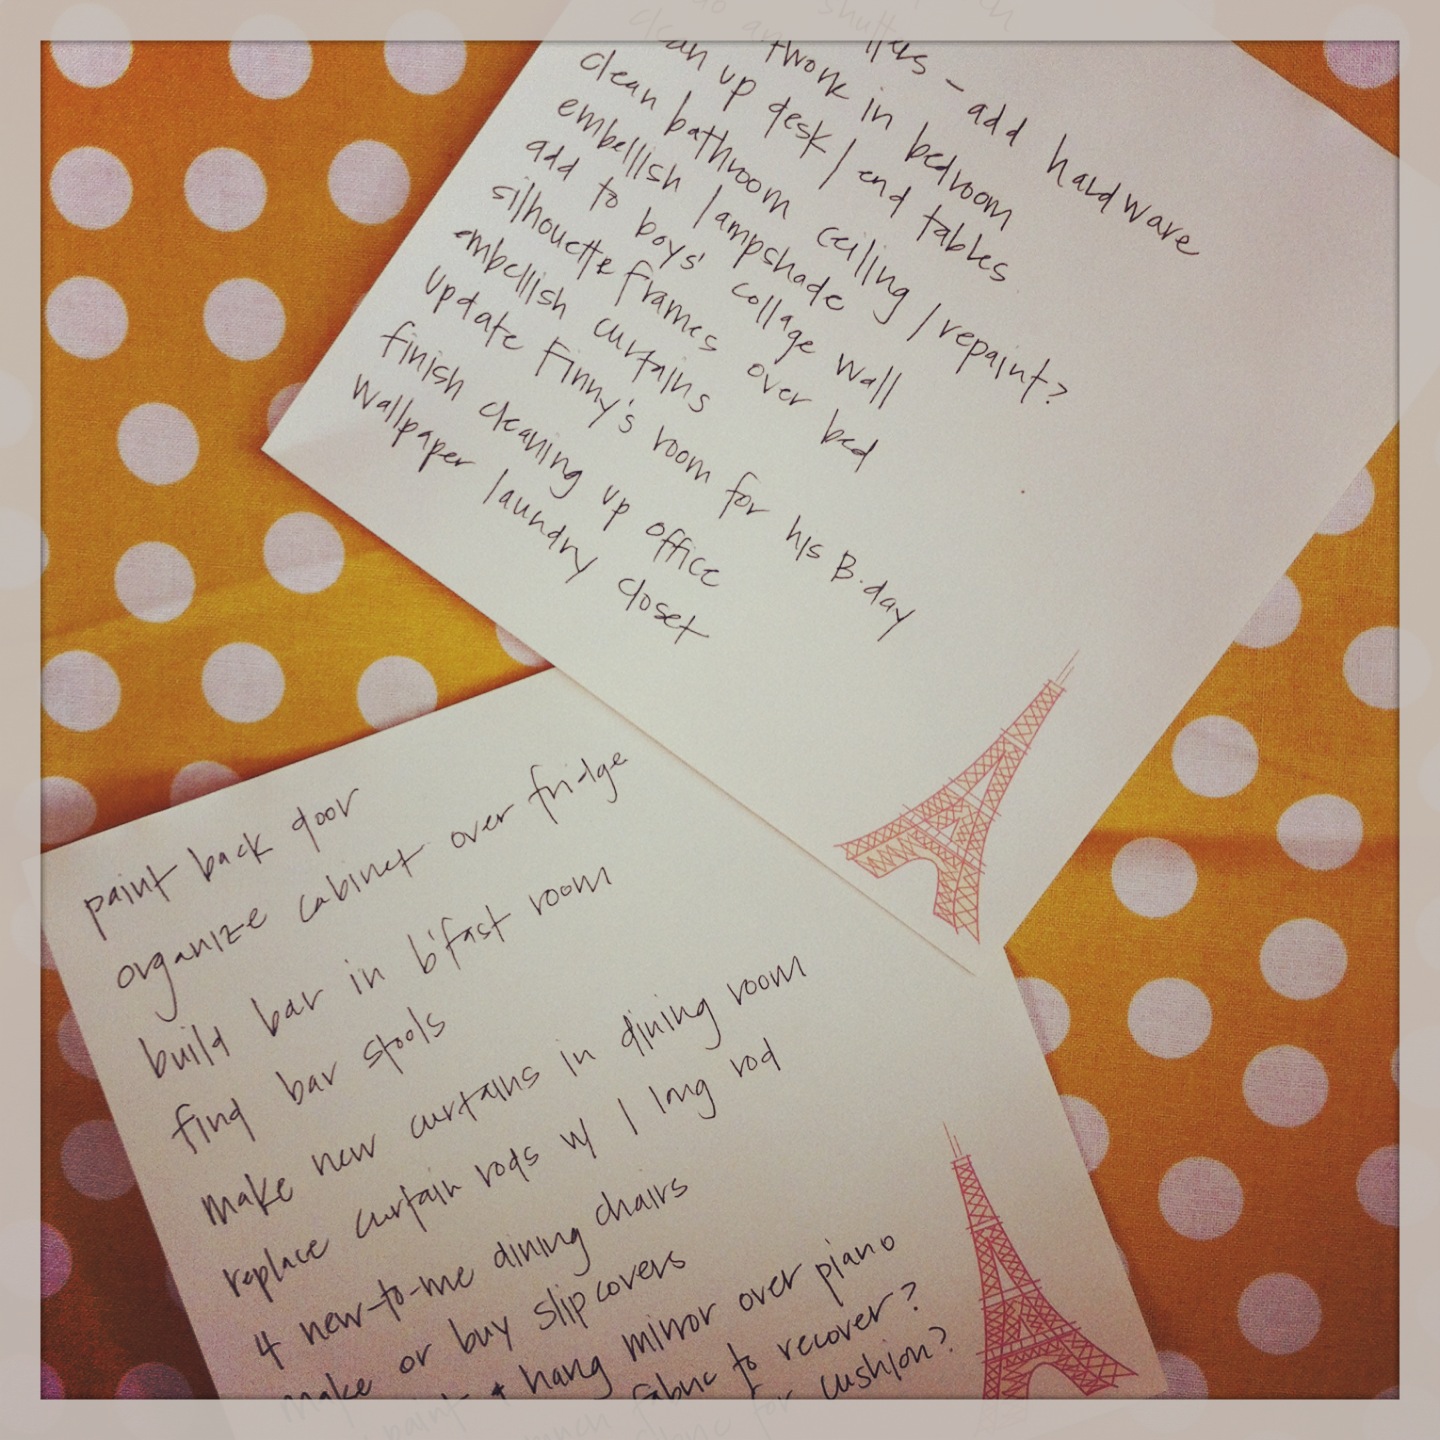 shutters - add hardware
artwork in bedroom
clean up desk / end tables
clean bathroom ceiling / repaint?
embellish lampshade
add to boys' collage wall
silhouette frames over bed
embellish curtains
update Finny's room for his B.day
finish cleaning up office
wallpaper laundry closet
paint back door
organize cabinet over fridge
build bar in b'fast room
find bar stools
make new curtains in dining room
replace curtain rods w/ 1 long rod
4 new-to-me dining chairs
make or buy slipcovers
paint + hang mirror over piano
fabric to recover?
for cushion?